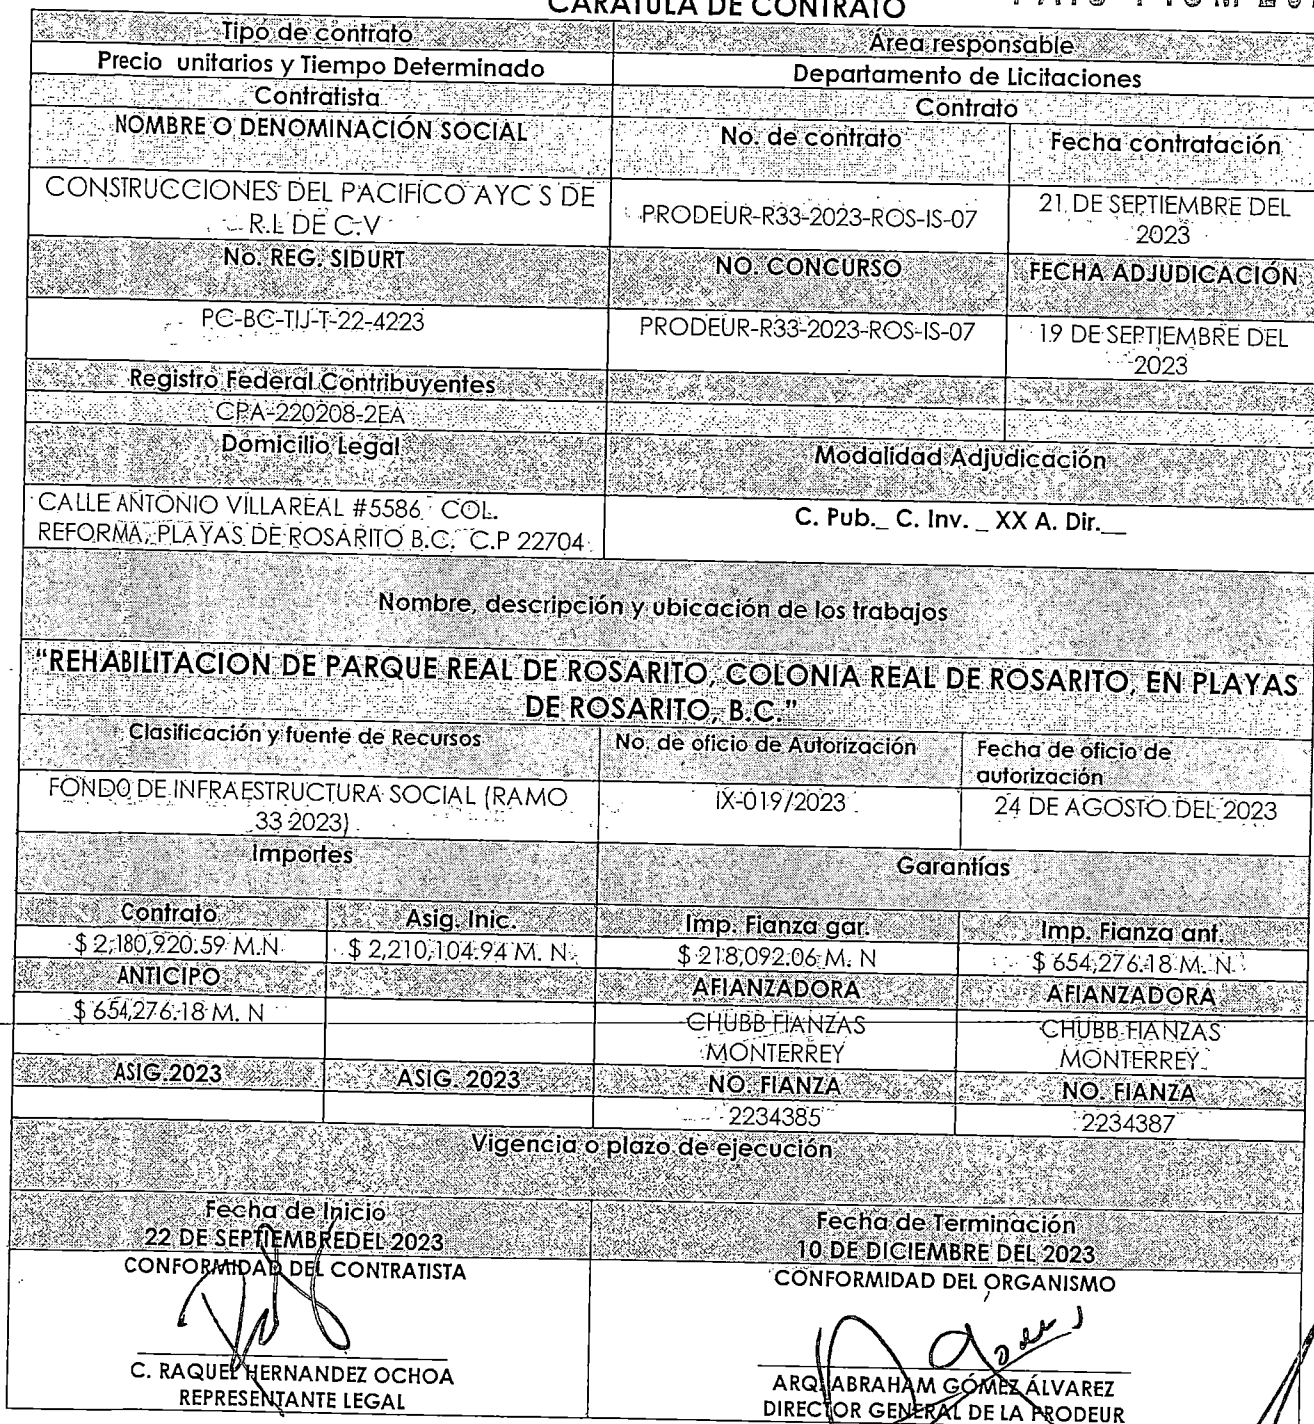 CARATULA DE CONTRATO
Tipo de contrato
Área responsable
Precio unitarios y Tiempo Determinado
Departamento de Licitaciones
Contratista
Contrato
NOMBRE O DENOMINACIÓN SOCIAL
No. de contrato
Fecha contratación
CONSTRUCCIONES DEL PACIFICO AYC S DE
R.L DE C.V
PRODEUR-R33-2023-ROS-IS-07
21 DE SEPTIEMBRE DEL
2023
No. REG. SIDURT
NO. CONCURSO
FECHA ADJUDICACIÓN
PC-BC-TIJ-T-22-4223
PRODEUR-R33-2023-ROS-IS-07
19 DE SEPTIEMBRE DEL
2023
Registro Federal Contribuyentes
CPA-220208-2EA
Domicilio Legal
Modalidad Adjudicación
CALLE ANTONIO VILLAREAL #5586 COL.
REFORMA, PLAYAS DE ROSARITO B.C. C.P 22704
C. Pub._ C. Inv. _ XX A. Dir.__
Nombre, descripción y ubicación de los trabajos
"REHABILITACION DE PARQUE REAL DE ROSARITO, COLONIA REAL DE ROSARITO, EN PLAYAS
DE ROSARITO, B.C."
Clasificación y fuente de Recursos
No. de oficio de Autorización
Fecha de oficio de
autorización
FONDO DE INFRAESTRUCTURA SOCIAL (RAMO
33 2023)
IX-019/2023
24 DE AGOSTO DEL 2023
Importes
Garantías
Contrato
Asig. Inic.
Imp. Fianza gar.
Imp. Fianza ant.
$ 2,180,920.59 M.N
$ 2,210,104.94 M. N.
$ 218,092.06 M. N
$ 654,276.18 M. N
ANTICIPO
AFIANZADORA
AFIANZADORA
$ 654,276.18 M. N
CHUBB FIANZAS
MONTERREY
CHUBB FIANZAS
MONTERREY
ASIG 2023
ASIG. 2023
NO. FIANZA
NO. FIANZA
2234385
2234387
Vigencia o plazo de ejecución
Fecha de Inicio
22 DE SEPTIEMBREDEL 2023
Fecha de Terminación
10 DE DICIEMBRE DEL 2023
CONFORMIDAD DEL CONTRATISTA
CONFORMIDAD DEL ORGANISMO
C. RAQUEL HERNANDEZ OCHOA
REPRESENTANTE LEGAL
ARQ. ABRAHAM GÓMEZ ÁLVAREZ
DIRECTOR GENERAL DE LA PRODEUR